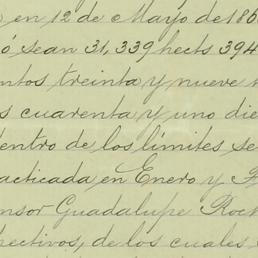 en 12 de Mayo de 186
ó sean 31,339 hects 394
ntos treinta y nueve
s cuarenta y uno die
dentro de los límites se
acticada en Enero y F
ensor Guadalupe Roch
pectivos, de los cuales